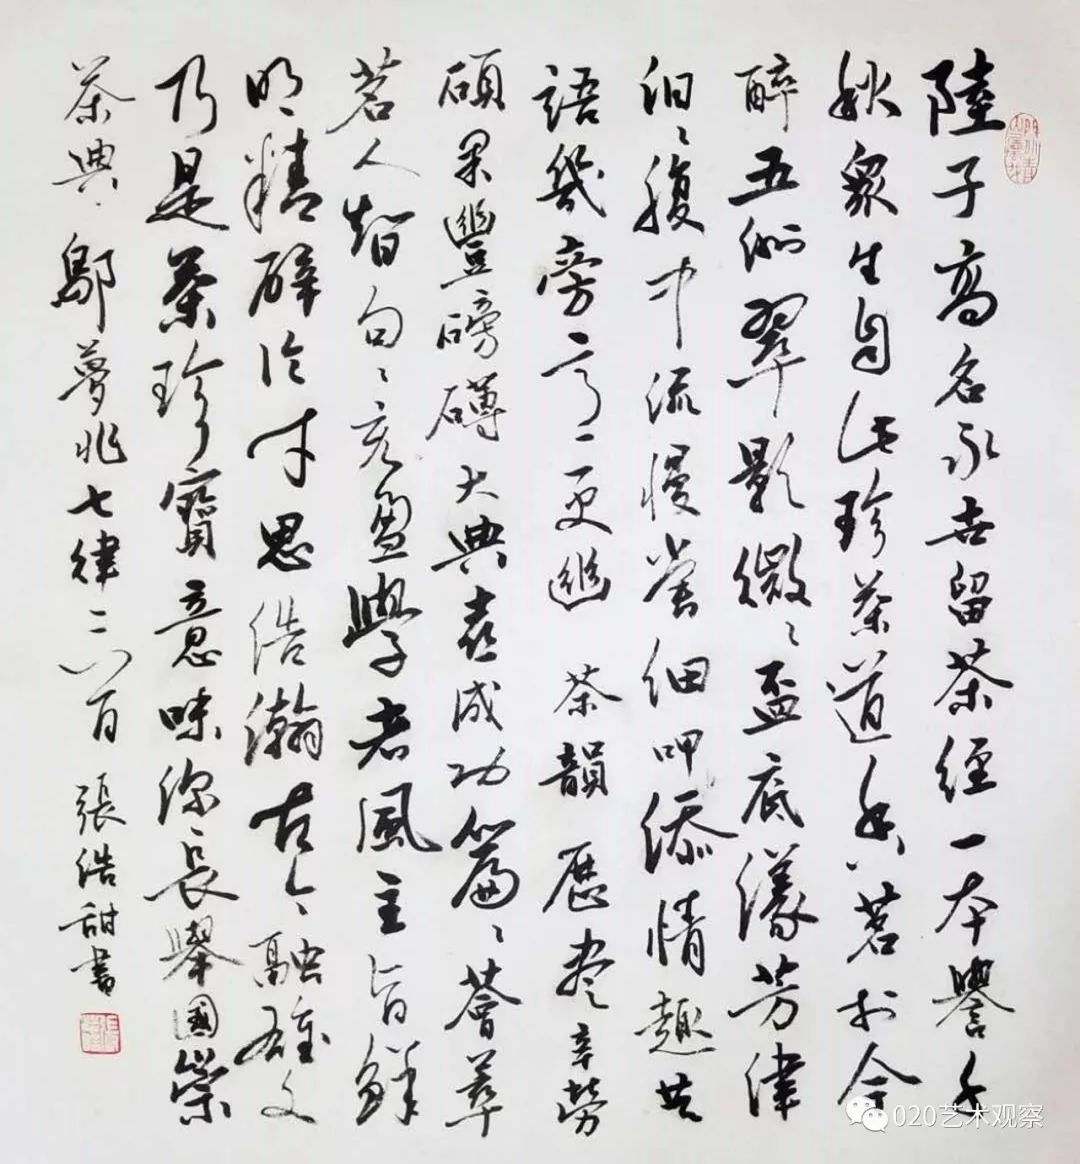 陸子高名永世留茶經一本譽千
秋眾生自此珍茶道香茗於今
醉五洲翠影微〻盃底漾芳津
汩〻腹中流慢嘗細呷添情趣共
語幾旁更幽 茶韻 歷盡辛勞
碩果豐磅礴大典喜成功篇〻薈萃
茗人智句〻充盈學者風主旨鮮
明精辟論才思浩瀚古今融雄文
乃是茶珍寶意味深長舉國崇
茶典 鄔夢兆七律二首 張浩甜書
020艺术观察